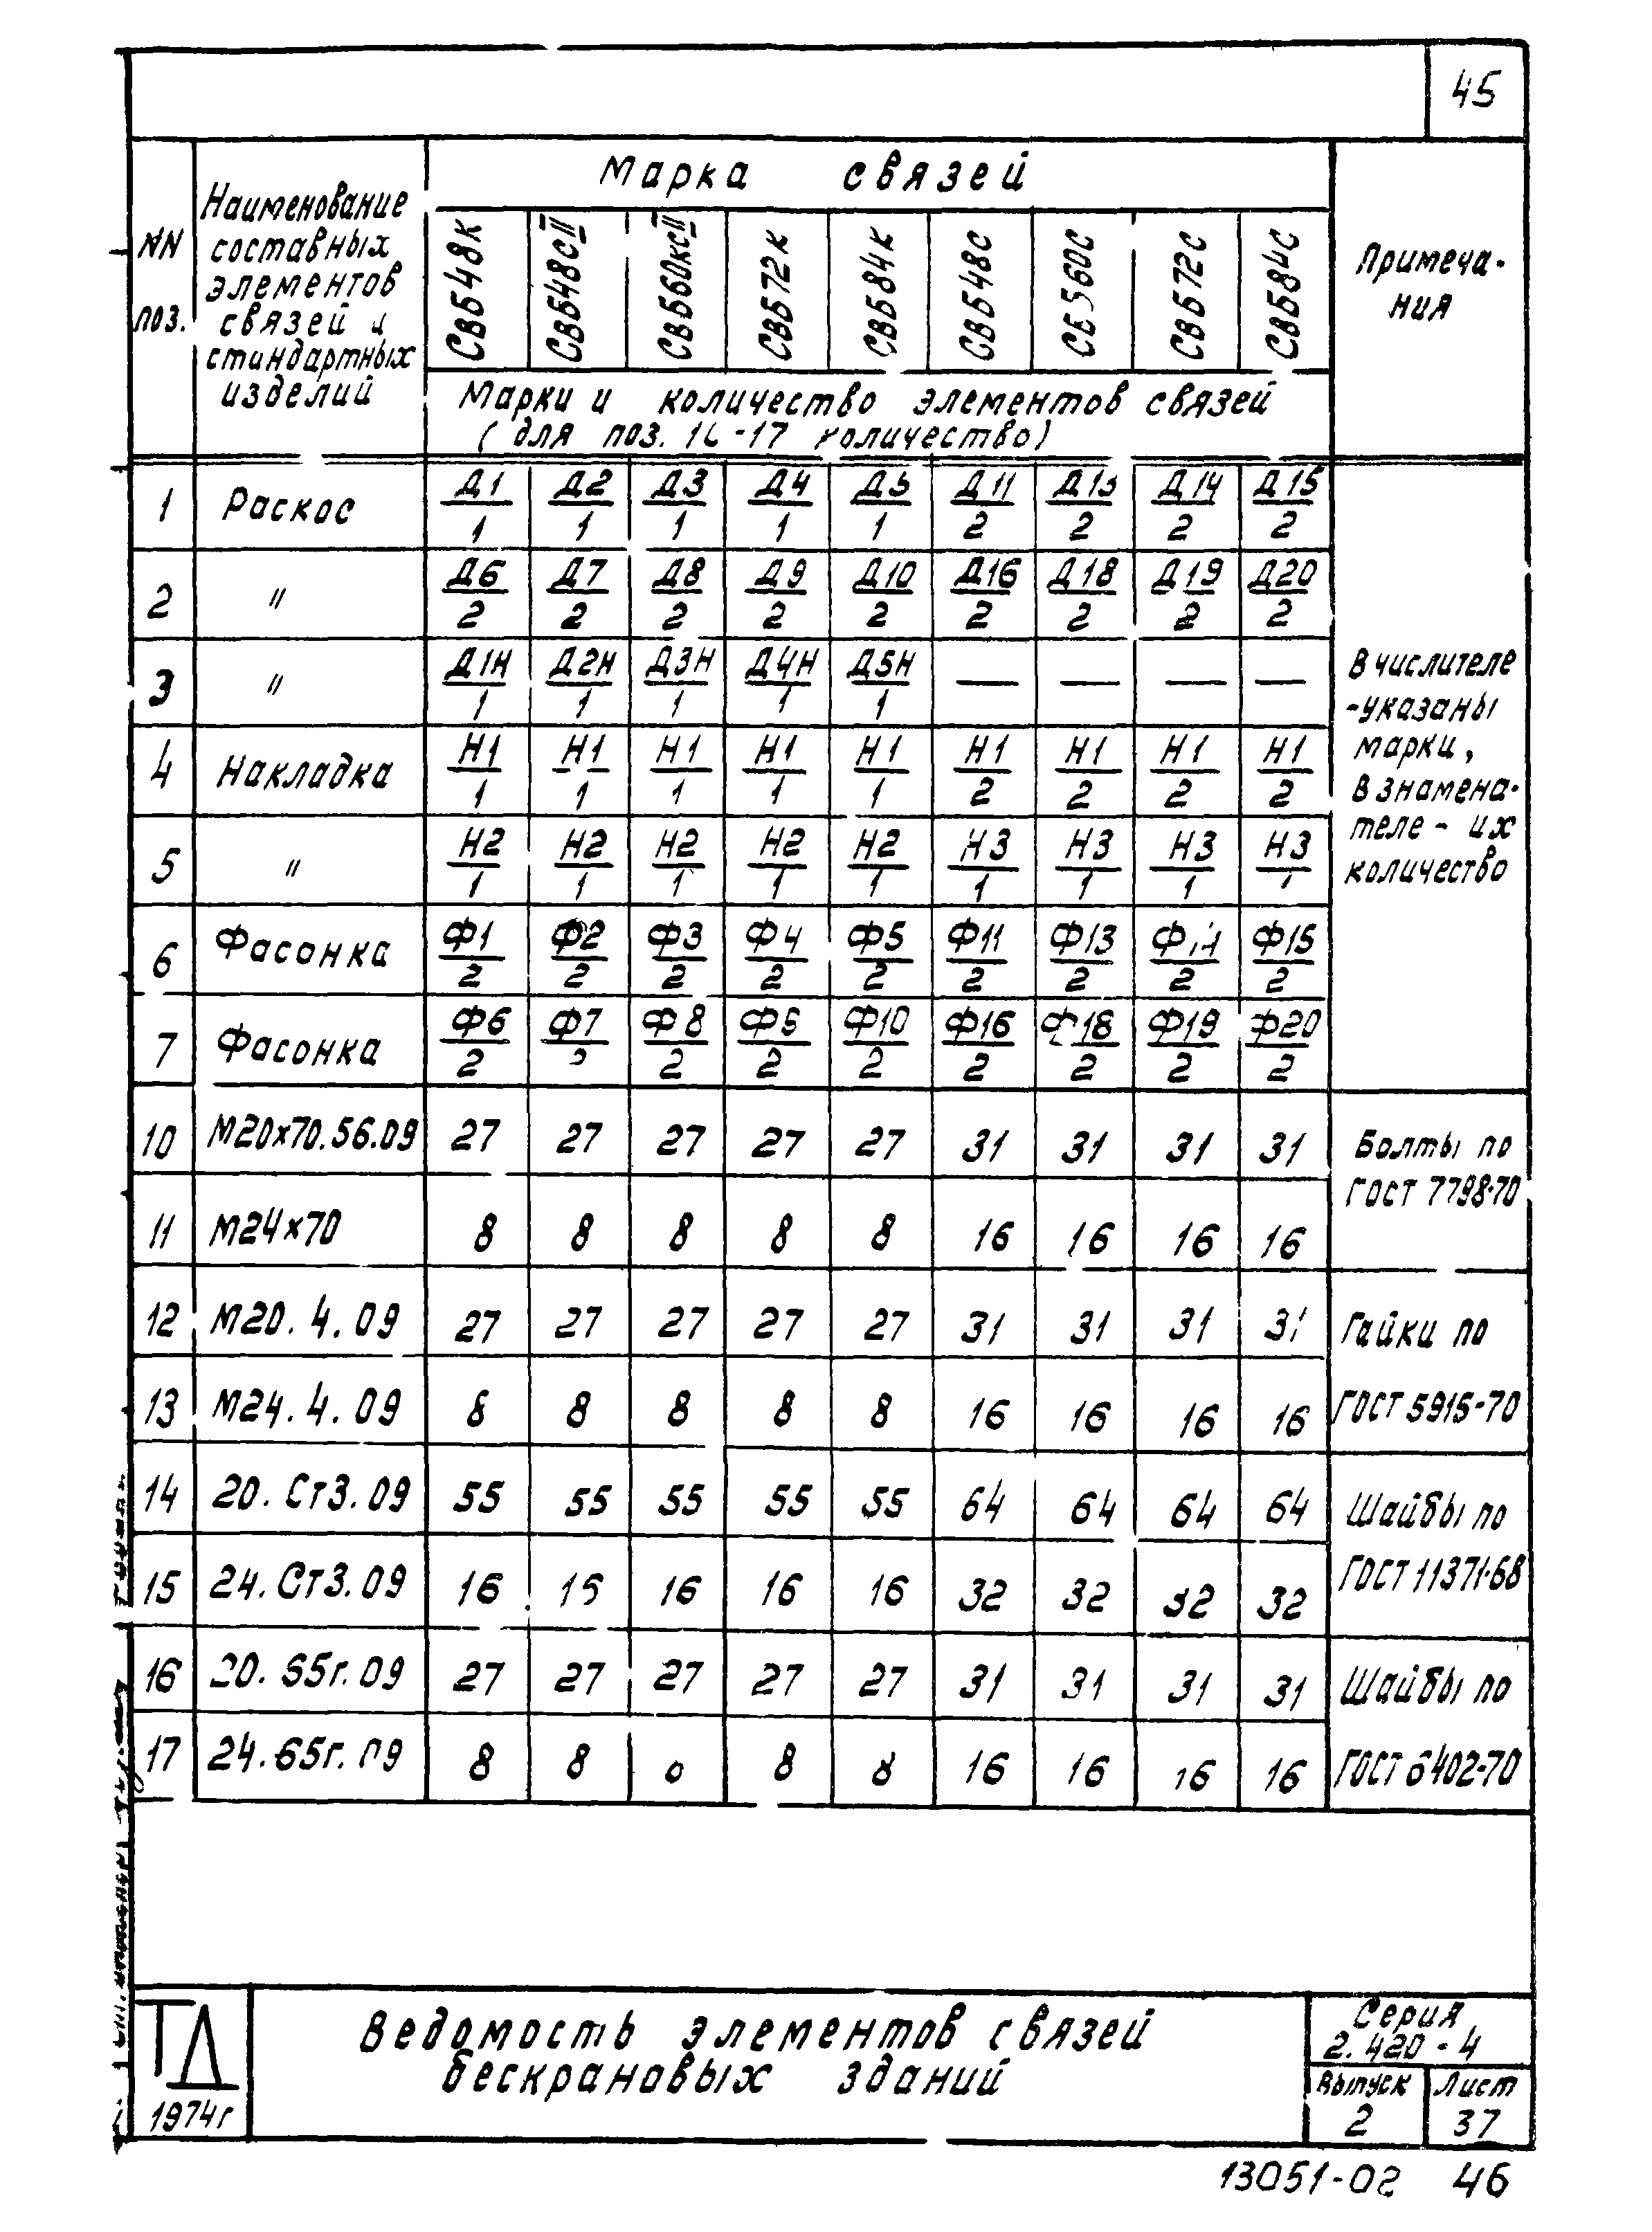 45
NN поз.
Наименование составных элементов связей и стандартных изделий
Марка связей
Примеча-
ния
СВБ48К СВБ48СII СВБ60КСII СВБ72К СВБ84К СВБ48С СВ560С СВБ72С СВБ84С
Марки и количество элементов связей
(для поз. 10-17 количество)
1 Раскос Д1/1 Д2/1 Д3/1 Д4/1 Д5/1 Д11/2 Д13/2 Д14/2 Д15/2
2 " Д6/2 Д7/2 Д8/2 Д9/2 Д10/2 Д16/2 Д18/2 Д19/2 Д20/2
3 " Д1Н/1 Д2Н/1 Д3Н/1 Д4Н/1 Д5Н/1 — — — —
4 Накладка Н1/1 Н1/1 Н1/1 Н1/1 Н1/1 Н1/2 Н1/2 Н1/2 Н1/2
5 " Н2/1 Н2/1 Н2/1 Н2/1 Н2/1 Н3/1 Н3/1 Н3/1 Н3/1
6 Фасонка Ф1/2 Ф2/2 Ф3/2 Ф4/2 Ф5/2 Ф11/2 Ф13/2 Ф14/2 Ф15/2
7 Фасонка Ф6/2 Ф7/2 Ф8/2 Ф9/2 Ф10/2 Ф16/2 Ф18/2 Ф19/2 Ф20/2
В числителе
-указаны
марки,
в знамена-
теле - их
количество
10 М20х70.56.09 27 27 27 27 27 31 31 31 31
11 М24х70 8 8 8 8 8 16 16 16 16
Болты по
ГОСТ 7798-70
12 М20.4.09 27 27 27 27 27 31 31 31 31
13 М24.4.09 8 8 8 8 8 16 16 16 16
Гайки по
ГОСТ 5915-70
14 20.Ст3.09 55 55 55 55 55 64 64 64 64
15 24.Ст3.09 16 16 16 16 16 32 32 32 32
Шайбы по
ГОСТ 11371-68
16 20.65г.09 27 27 27 27 27 31 31 31 31
17 24.65г.09 8 8 8 8 8 16 16 16 16
Шайбы по
ГОСТ 6402-70
ТД
1974г
Ведомость элементов связей
бескрановых зданий
Серия
2.420-4
Выпуск
2
Лист
37
13051-02 46